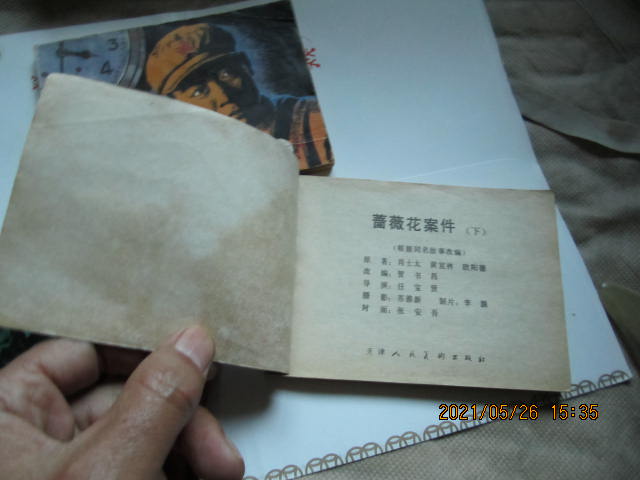 3
4
蔷薇花案件（下）
（根据同名故事改编）
原著：肖士太 黄宣林 欧阳德
改编：贺书昌
导演：任宝贤
摄影：苏雅新 制片：李鹏
封面：张安吾
天津人民美术出版社
2021/05/26 15:35